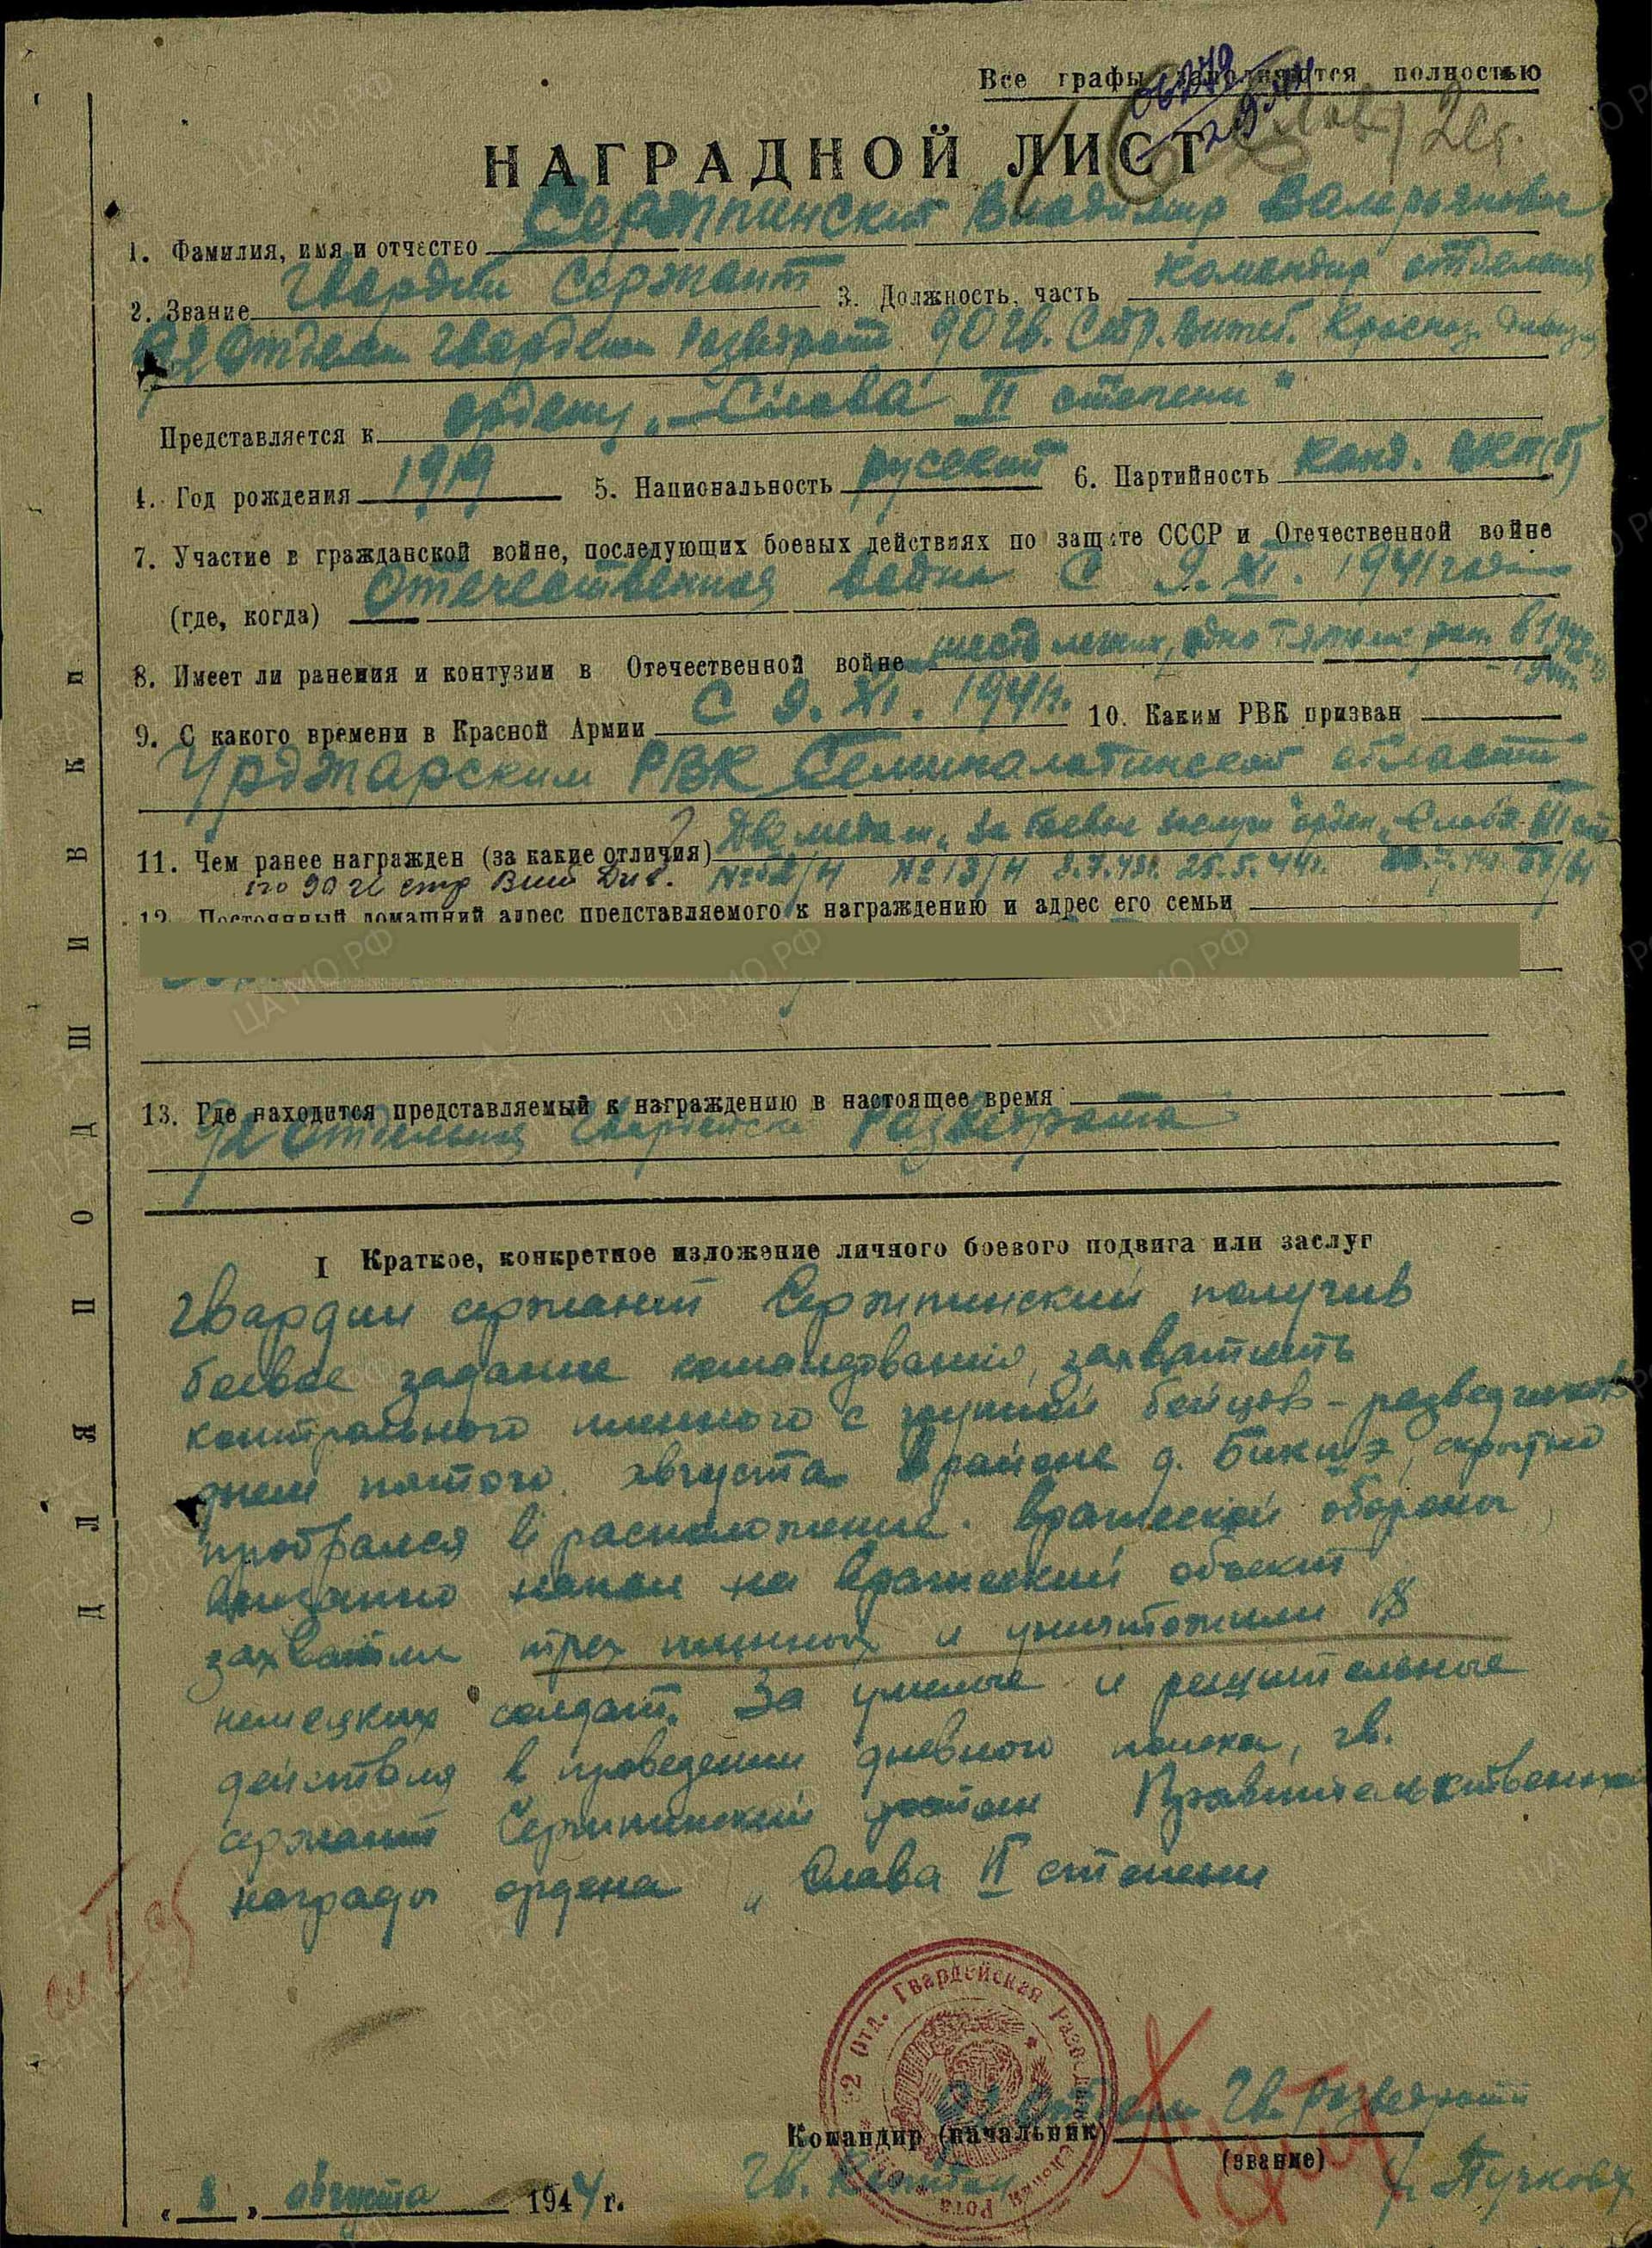 Все графы заполняются полностью
НАГРАДНОЙ ЛИСТ
1. Фамилия, имя и отчество Сержпинский Владимир Валерьянович
2. Звание Гвардии Сержант 3. Должность, часть командир отделения
92 Отдельн Гвардейск Разведрота 90 гв. Стр. Витеб. Красноз. дивизии
Представляется к ордену „Слава II степени"
4. Год рождения 1919 5. Национальность русский 6. Партийность канд. ВКП(б)
7. Участие в гражданской войне, последующих боевых действиях по защите СССР и Отечественной войне
(где, когда) Отечественная война с 9. XI. 1941 года
8. Имеет ли ранения и контузии в Отечественной войне шесть легких, одно тяжелое
9. С какого времени в Красной Армии с 9. XI. 1941г. 10. Каким РВК призван
Урджарским РВК Семипалатинской области
11. Чем ранее награжден (за какие отличия) Две медали „За боевые заслуги" орден „Слава III ст
по 90 гв стр Вит Див. №52/н №13/н 8.7.43г. 25.5.44г.
12. Постоянный домашний адрес представляемого к награждению и адрес его семьи
13. Где находится представляемый к награждению в настоящее время
92 Отдельная Гвардейск Разведрота
I Краткое, конкретное изложение личного боевого подвига или заслуг
Гвардии сержант Сержпинский получив
боевое задание командования, захватить
контрольного пленного с группой бойцов-разведчиков
днем пятого августа в районе д. Бикшэ, скрытно
пробрался в расположение вражеской обороны
внезапно напал на вражеский объект
захватили трех пленных и уничтожили 18
немецких солдат. За умелые и решительные
действия в проведении дневного поиска, гв.
сержант Сержпинский достоин Правительственной
награды ордена „Слава II степени
Командир (начальник) 92 Отдельн Гв. разведроты
(звание)
Гв. Капитан Пучков
„8" августа 1944 г.
2 Отд. Гвардейская Разведывательная Рота
ДЛЯ ПОДШИВКИ